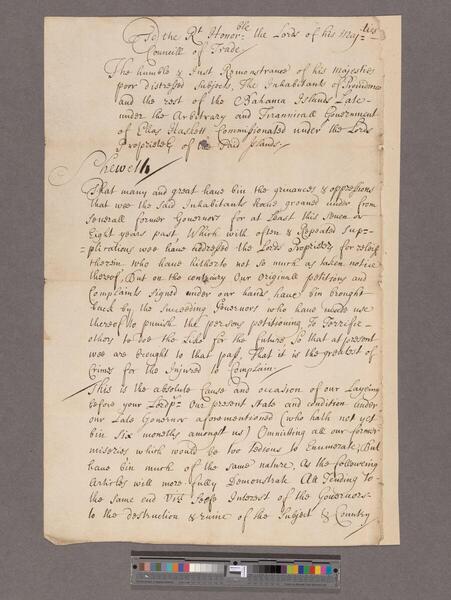 To the Rt Honoble the Lords of his Majties
Councill of Trade
The humble & Just Remonstrance of his Majesties
poor distressed Subjects, The Inhabitants of Providence
and the rest of the Bahama Islands Late
under the Arbitrary and Tirannicall Government
of Elias Haskett Commissionated under the Lords
Proprietrs of the said Islands/
Sheweth
That many and great have bin the grievances & oppressions
that wee the said Inhabitants have groaned under from
severall former Governors for at Least this seven or
Eight years past, Which with often & Repeated Sup-
=plications wee have addressed the Lords Proprietrs for releif
therein who have hitherto not so much as taken notice
thereof, But on the contrary Our originall petitions and
Complaints signed under our hands, have bin brought
back by the succeeding Governors who have made use
thereof to punish the persons petitioning To Terrifie
others to doe the Like for the future, So that at present
wee are brought to that pass, That it is the greatest of
Crimes for the Injured to Complain/
This is the absolute Cause and occasion of our Layeing
before your Lordps Our present state and condition under
our Late Governor aforementioned (who hath not yet
bin six moneths amongst us) Omitting all our former
miseries which would be too tedious to Enumerate, But
have bin much of the same nature, As the following
Articles will more fully Demonstrate All Tending to
the same end Vizt Interest of the Governors
to the destruction & ruine of the Subject & Country